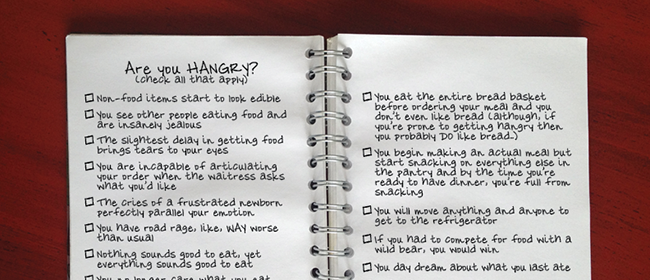 Are you HANGRY?
(check all that apply)
Non-food items start to look edible
You see other people eating food and
are insanely jealous
The slightest delay in getting food
brings tears to your eyes
You are incapable of articulating
your order when the waitress asks
what you'd like
The cries of a frustrated newborn
perfectly parallel your emotion
You have road rage, like, WAY worse
than usual
Nothing sounds good to eat, yet
everything sounds good to eat
You no longer care what you eat
You eat the entire bread basket
before ordering your meal and you
don't even like bread (although, if
you're prone to getting hangry then
you probably DO like bread.)
You begin making an actual meal but
start snacking on everything else in
the pantry and by the time you're
ready to have dinner, you're full from
snacking
You will move anything and anyone to
get to the refrigerator
If you had to compete for food with a
wild bear, you would win
You day dream about what you last ate